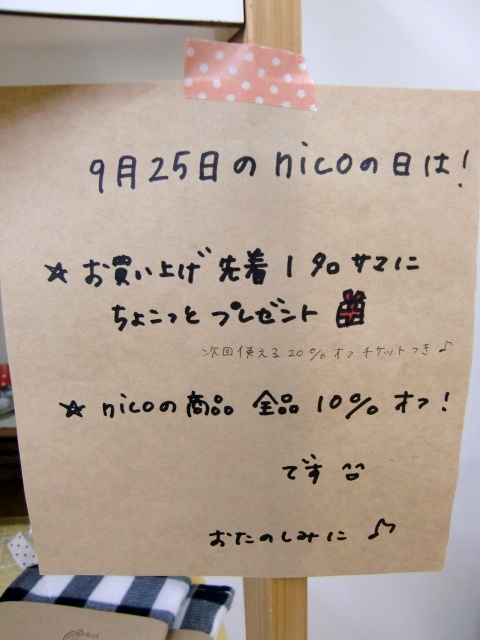 9月25日のnicoの日は!
☆ お買い上げ 先着 1名サマに
ちょこっと プレゼント
次回使える 20%オフ チケットつき♪
☆ nicoの商品 全品 10% オフ!
です
おたのしみに ♪